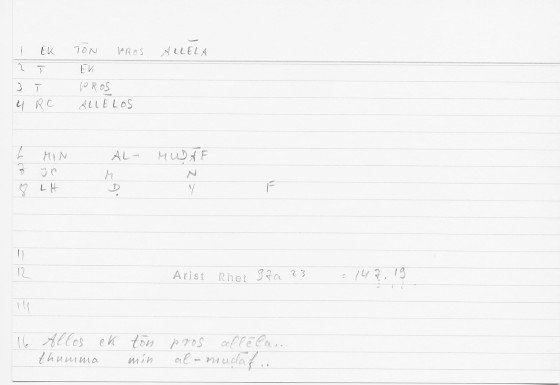 1 EK TŌN PROS ALLĒLA
2 T EK
3 T PROS
4 RC ALLĒLOS
6 MIN AL- MUḌĀF
7 JR M N
8 LH Ḍ Y F
11
12 Arist Rhet 97a 23 = 147.19
14
16 Allos ek tōn pros allēla..
thumma min al-muḍāf..